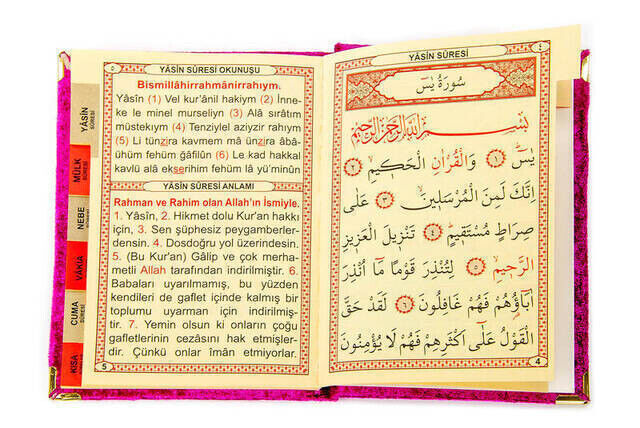 YÂSİN SÛRESİ OKUNUŞU
Bismillâhirrahmânirrahıym.
Yâsîn (1) Vel kur'ânil hakiym (2) İnne-
ke le minel murseliyn (3) Alâ sırâtım
müstekıym (4) Tenziylel aziyzir rahıym
(5) Li tünzira kavmem mâ ünzira âbâ-
ühüm fehüm ğâfilûn (6) Le kad hakkal
kavlü alâ ekserihim fehüm lâ yü'minûn
YÂSİN SÛRESİ ANLAMI
Rahman ve Rahim olan Allah'ın İsmiyle.
1. Yâsîn, 2. Hikmet dolu Kur'an hakkı
için, 3. Sen şüphesiz peygamberler-
densin. 4. Dosdoğru yol üzerindesin.
5. (Bu Kur'an) Gâlip ve çok merha-
metli Allah tarafından indirilmiştir. 6.
Babaları uyarılmamış, bu yüzden
kendileri de gaflet içinde kalmış bir
toplumu uyarman için indirilmiş-
tir. 7. Yemin olsun ki onların çoğu
gafletlerinin cezâsını hak etmişler-
dir. Çünkü onlar îmân etmiyorlar.
5
YÂSİN SÛRESİ
MÜLK SÛRESİ
NEBE
VÂKIA
CUMA SÛRESİ
KISA
YÂSİN SÛRESİ
٤
سُورَةُ يٰسٓ
بِسْمِ اللهِ الرَّحْمٰنِ الرَّحِيمِ
يٰسٓ ﴿١﴾ وَالْقُرْاٰنِ الْحَكِيمِ ﴿٢﴾
اِنَّكَ لَمِنَ الْمُرْسَلِينَ ﴿٣﴾ عَلٰى
صِرَاطٍ مُسْتَقِيمٍ ﴿٤﴾ تَنْزِيلَ الْعَزِيزِ
الرَّحِيمِ ﴿٥﴾ لِتُنْذِرَ قَوْمًا مَٓا اُنْذِرَ
اٰبَٓاؤُهُمْ فَهُمْ غَافِلُونَ ﴿٦﴾ لَقَدْ حَقَّ
الْقَوْلُ عَلٰٓى اَكْثَرِهِمْ فَهُمْ لَا يُؤْمِنُونَ
4